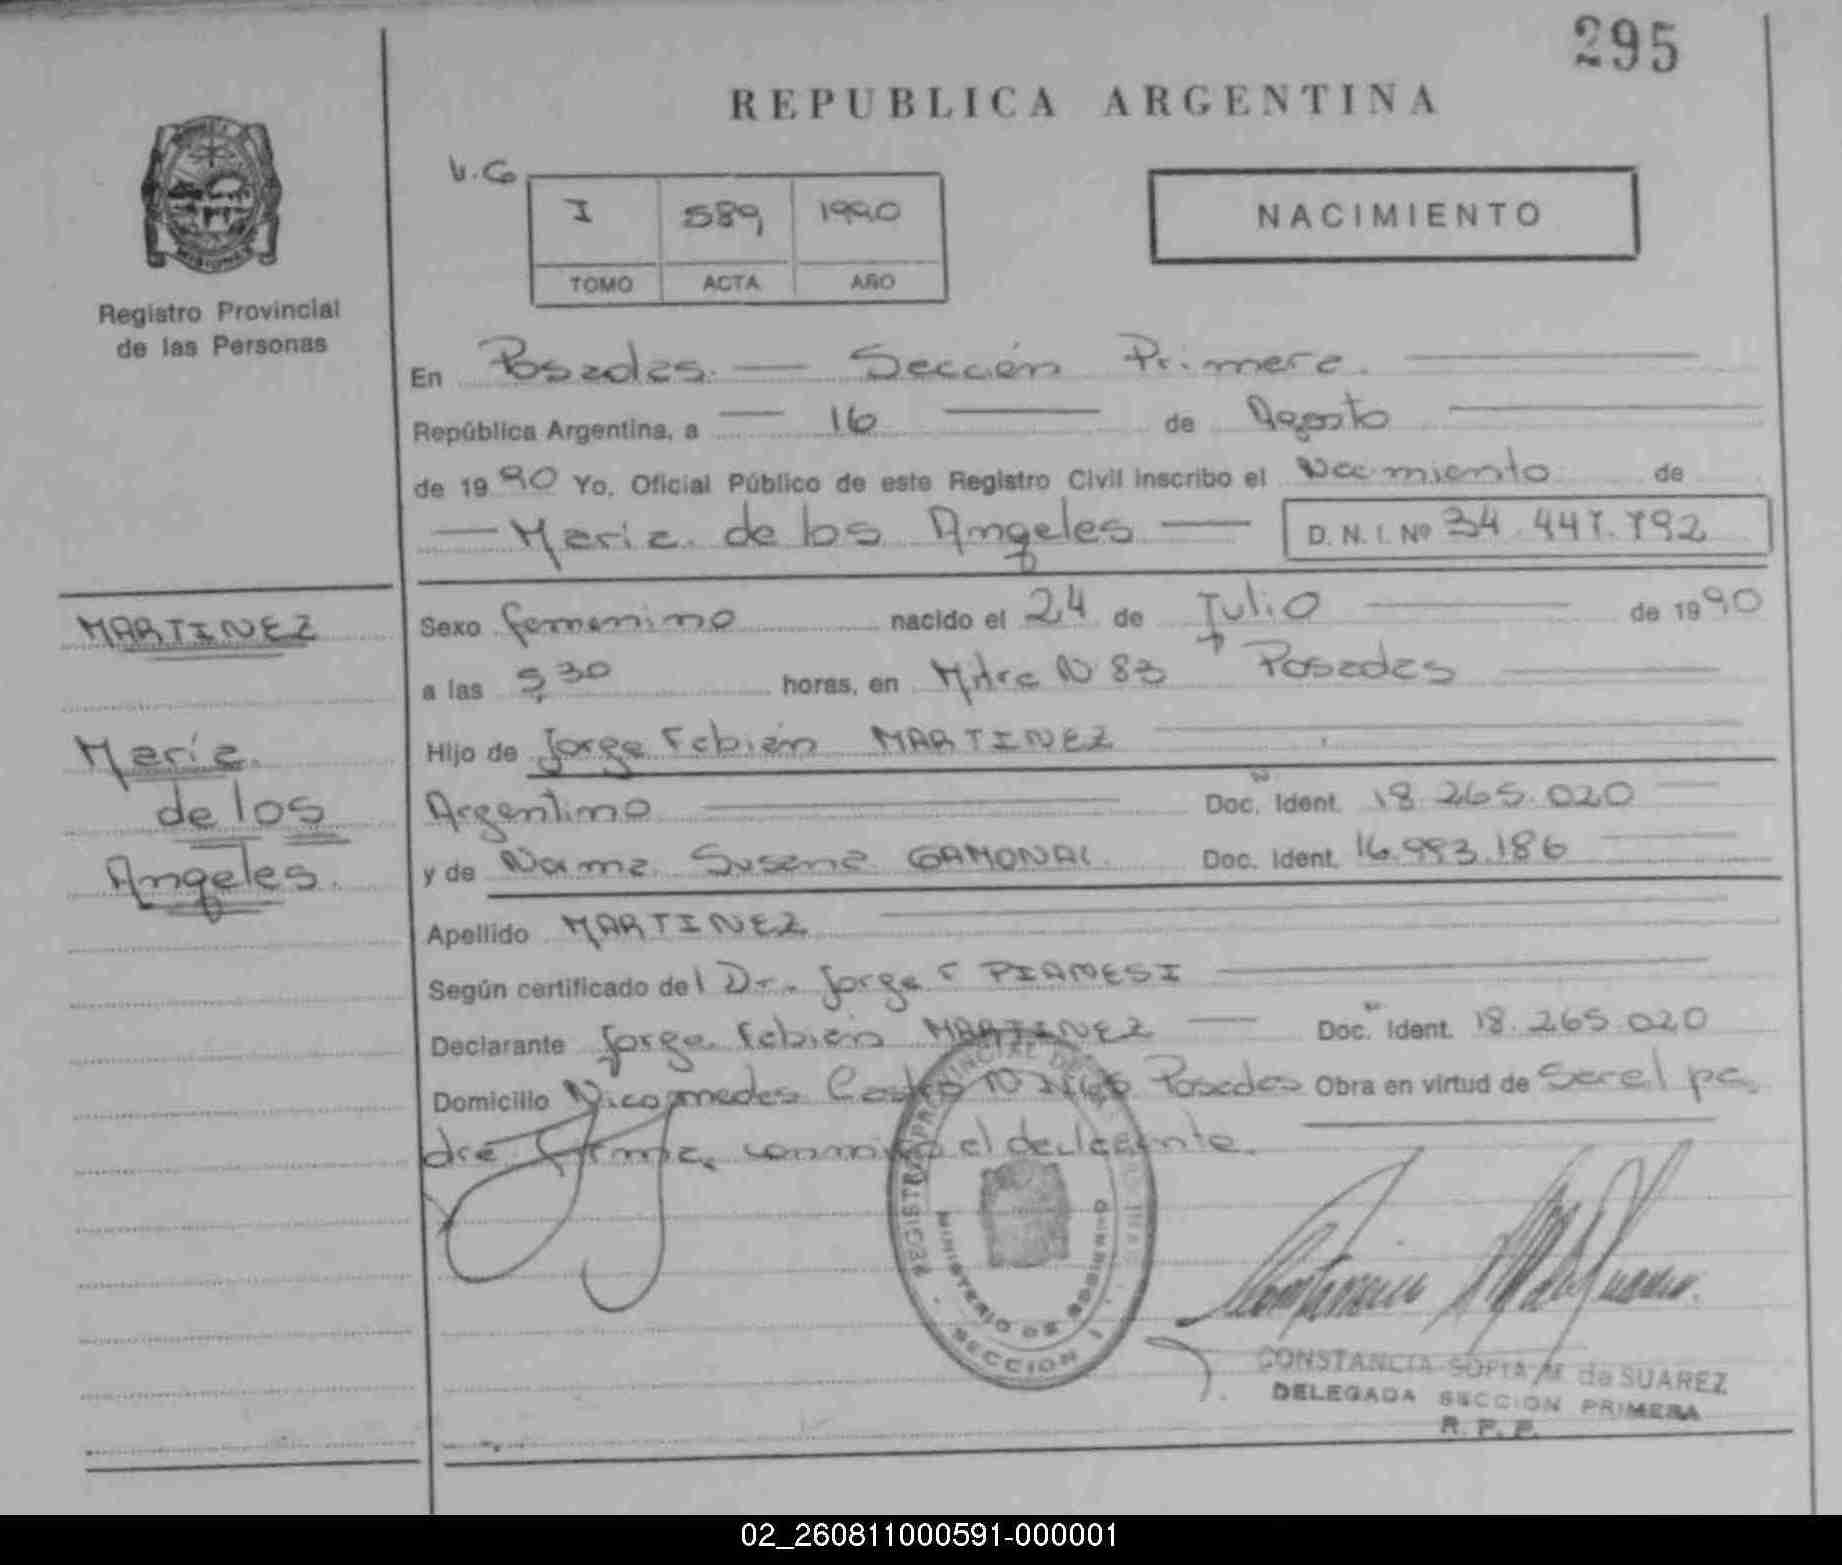 295
REPUBLICA ARGENTINA
V.G
I 589 1990
TOMO ACTA AÑO
NACIMIENTO
Registro Provincial
de las Personas
En Posadas. — Sección Primera.
República Argentina, a — 16 — de Agosto
de 1990 Yo, Oficial Público de este Registro Civil inscribo el Nacimiento de
— María de los Angeles — D. N. I. Nº 34.447.792
MARTINEZ
María
de los
Angeles.
Sexo femenino nacido el 24 de Julio — de 1990
a las 9,30 horas, en Mitre N 83 Posadas
Hijo de Jorge Fabián MARTINEZ
Argentino — Doc. Ident. 18.265.020
y de Norma Susana GAMONAL Doc. Ident. 16.993.186
Apellido MARTINEZ
Según certificado del Dr. Jorge PIAMESI
Declarante Jorge Fabián MARTINEZ — Doc. Ident. 18.265.020
Domicilio Nicomedes Castro N Posadas Obra en virtud de Ser el pa
dre firma conmigo el declarante.
REGISTRO PROVINCIAL DE LAS
MINISTERIO DE GOBIERNO
SECCION 1
CONSTANCIA SOFIA M de SUAREZ
DELEGADA SECCION PRIMERA
R. P. P.
02_260811000591-000001